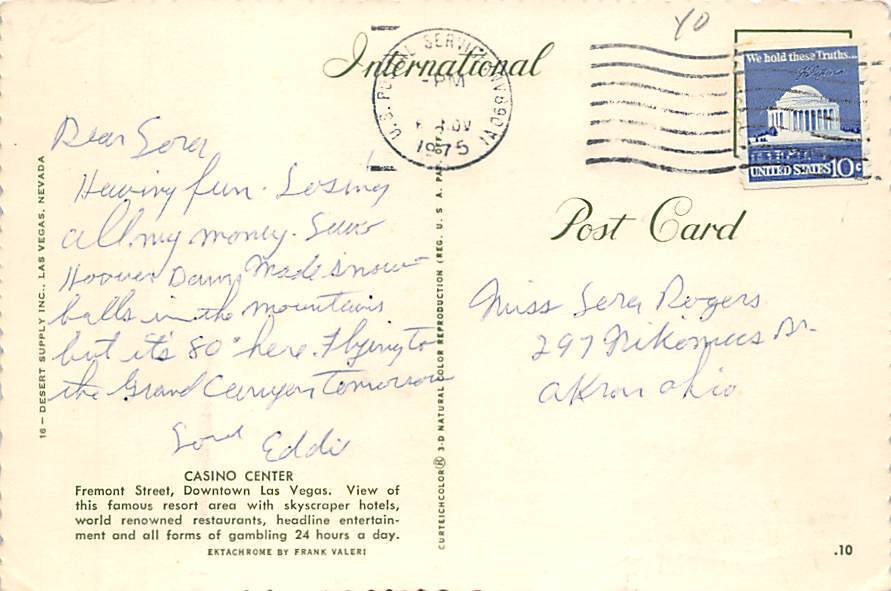 International
Post Card
U.S. POSTAL SERVICE
PM
NOV
1975
YO
We hold these Truths...
UNITED STATES 10c
Dear Sera,
Having fun. Losing
all my money. Saw
Hoover Dam, Made snow
balls in the mountains
but it's 80° here. Flying to
the Grand Canyon tomorrow
Eddie
Miss Sera Rogers
297 Nikomus Dr.
Akron Ohio
CASINO CENTER
Fremont Street, Downtown Las Vegas. View of
this famous resort area with skyscraper hotels,
world renowned restaurants, headline entertain-
ment and all forms of gambling 24 hours a day.
EKTACHROME BY FRANK VALERI
16 — DESERT SUPPLY INC., LAS VEGAS, NEVADA
CURTEICHCOLOR® 3-D NATURAL COLOR REPRODUCTION (REG. U. S. A. PAT. OFF.)
.10